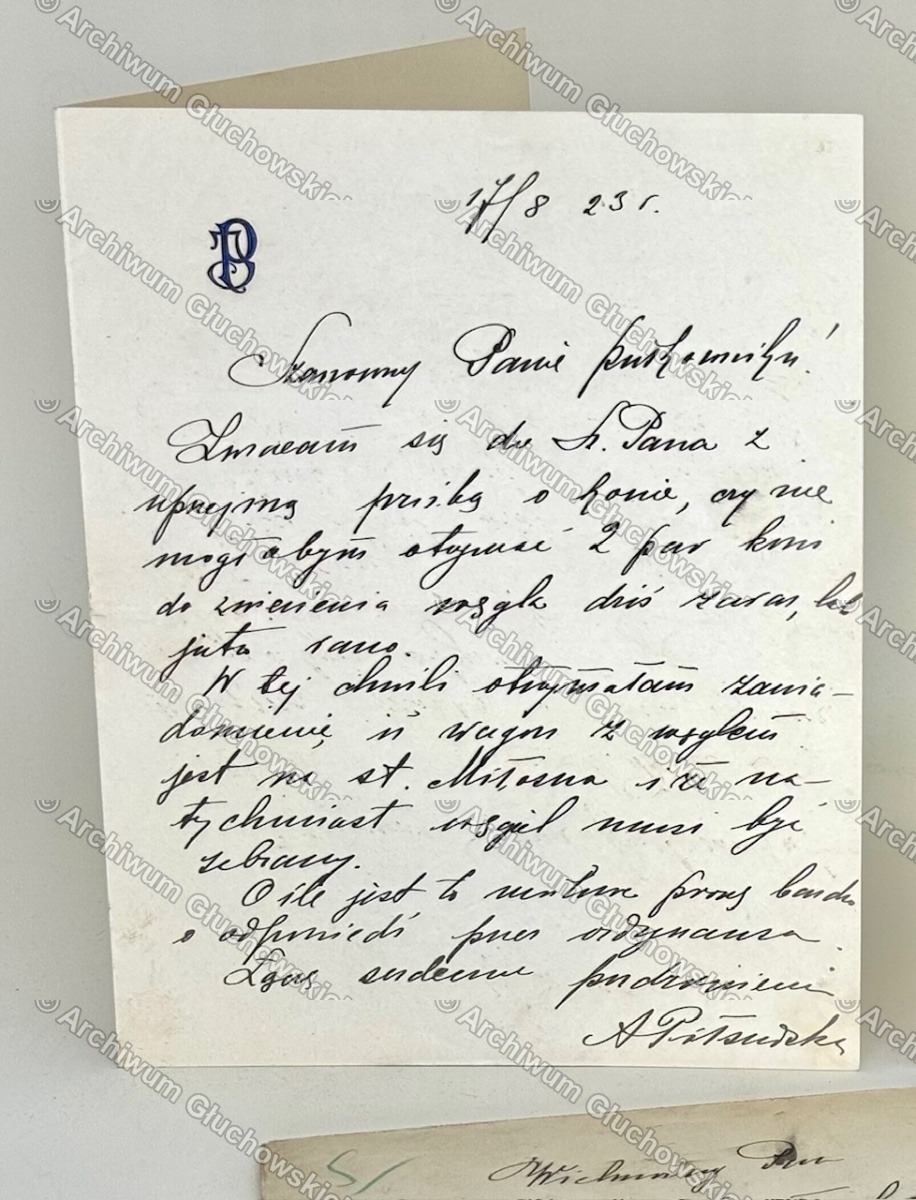 17/8 23 r.
JP
Szanowny Panie pułkowniku!
Zwracam się do Sz. Pana z
uprzejmą prośbą o konie, czy nie
mogłabym otrzymać 2 par koni
do zwiezienia węgla dziś zaraz, lub
jutro rano.
W tej chwili otrzymałam zawia-
domienie, iż wagon z węglem
jest na st. Miłosna i że na-
tychmiast węgiel musi być
zebrany.
O ile jest to możliwe proszę bardzo
o odpowiedź przez ordynansa.
Łączę serdeczne pozdrowienia
A Piłsudska
Wielmożny Pan
© Archiwum Głuchowskich